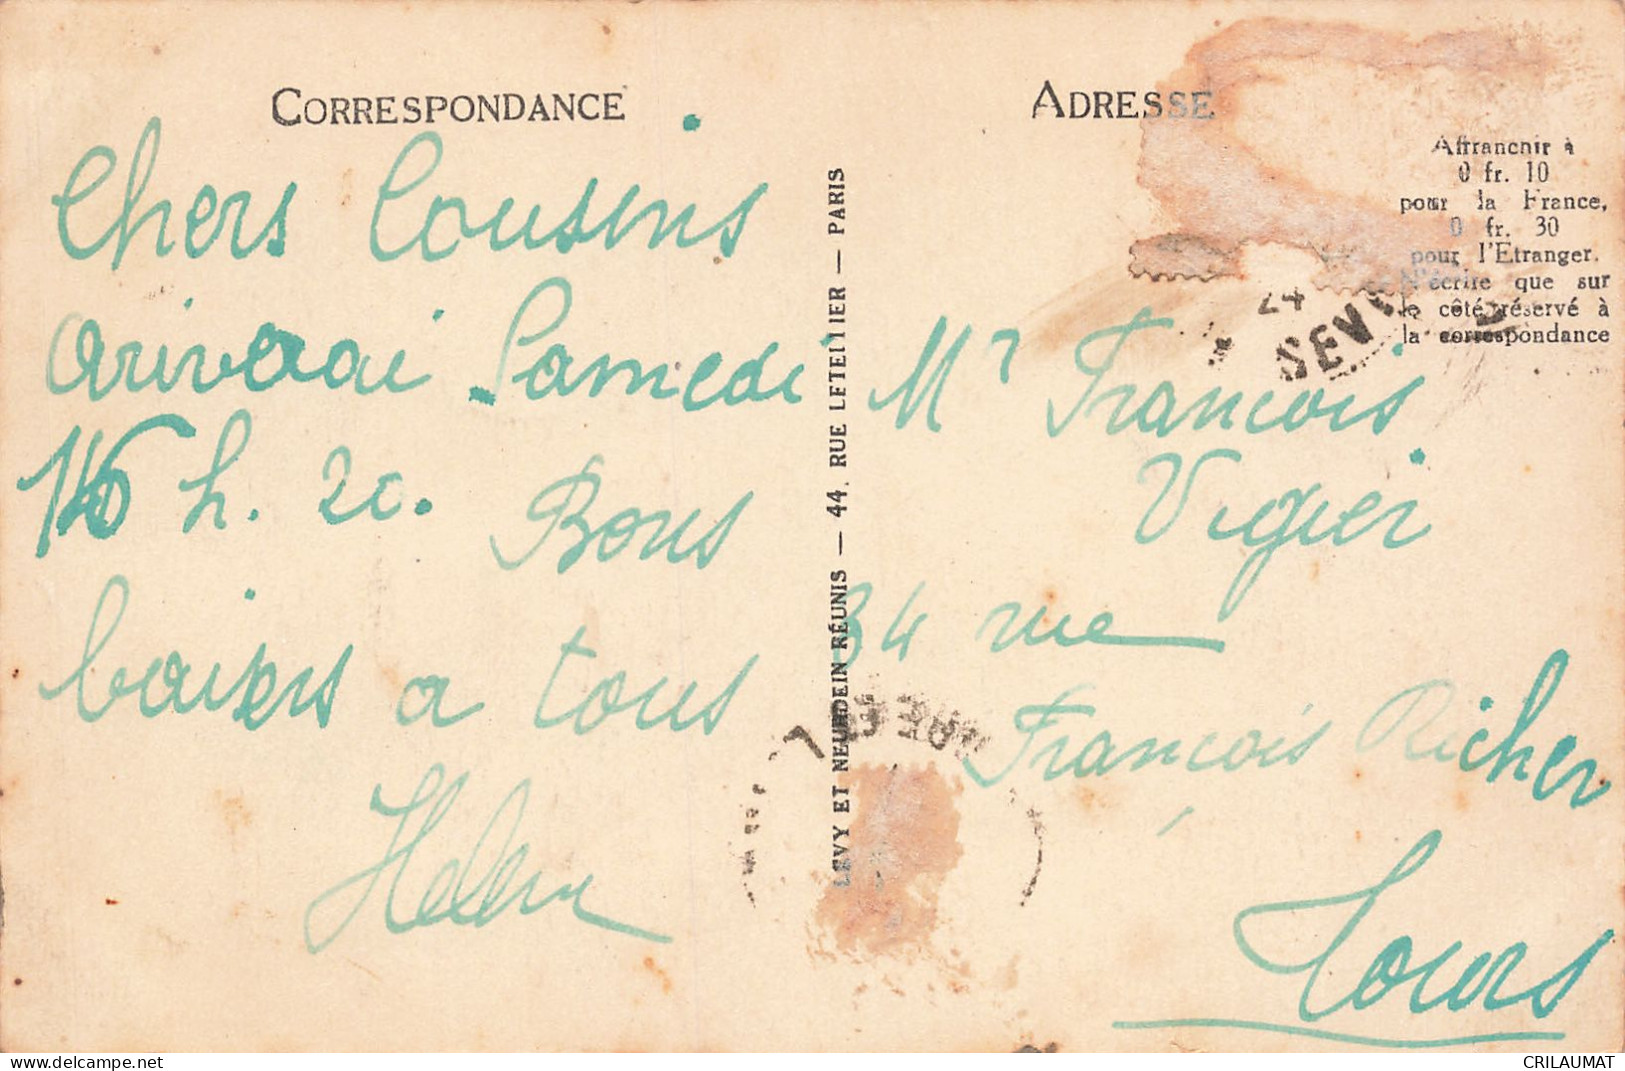 CORRESPONDANCE
Chers Cousins
arivaai Samedi
16 h. 20. Bons
baisers a tous
Helene
LEVY ET NEURDEIN RÉUNIS — 44, RUE LETELLIER — PARIS
ADRESSE
Affranchir à
0 fr. 10
pour la France,
0 fr. 30
pour l'Etranger.
N'écrire que sur
le côté réservé à
la correspondance
24
SEV
Mr Francois
Vigier
34 rue
François Richer
Tours
www.delcampe.net
CRILAUMAT